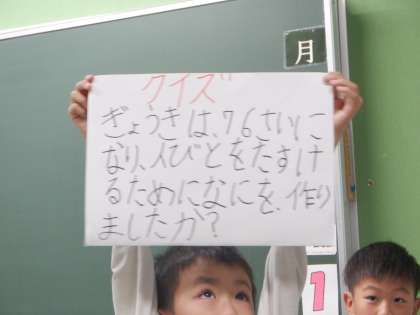 月
クイズ
ぎょうきは、76さいに
なり、人びとをたすけ
るためになにを、作り
ましたか?
1